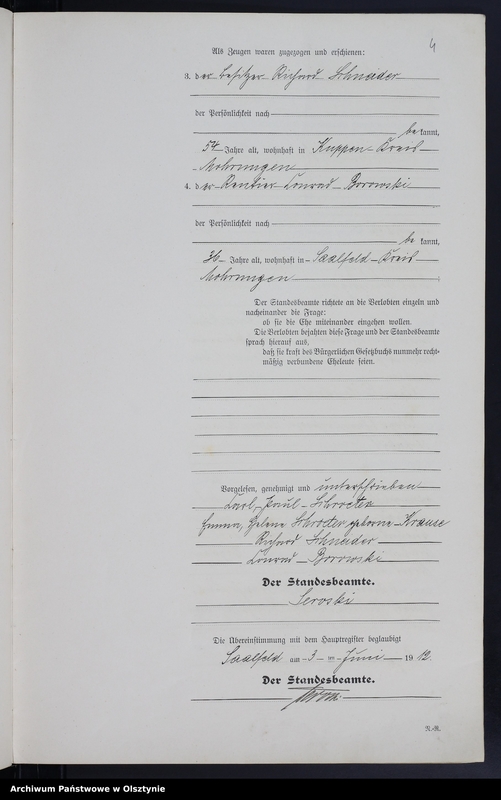 4
Als Zeugen waren zugezogen und erschienen:
3. der Besitzer Richard Schneider
der Persönlichkeit nach
be kannt,
54 Jahre alt, wohnhaft in Kuppen Kreis
Mohrungen
4. der Rentier Konrad Borowski
der Persönlichkeit nach
be kannt,
36 Jahre alt, wohnhaft in Saalfeld Kreis
Mohrungen
Der Standesbeamte richtete an die Verlobten einzeln und
nacheinander die Frage:
ob sie die Ehe miteinander eingehen wollen.
Die Verlobten bejahten diese Frage und der Standesbeamte
sprach hierauf aus,
daß sie kraft des Bürgerlichen Gesetzbuchs nunmehr recht-
mäßig verbundene Eheleute seien.
Vorgelesen, genehmigt und unterschrieben
Karl Paul Schroeter
Emma, Helene Schroeter geborne Krause
Richard Schneider
Konrad Borowski
Der Standesbeamte.
Seroski
Die Übereinstimmung mit dem Hauptregister beglaubigt
Saalfeld am 3 ten Juni 19 12.
Der Standesbeamte.
N.-R.
Archiwum Państwowe w Olsztynie